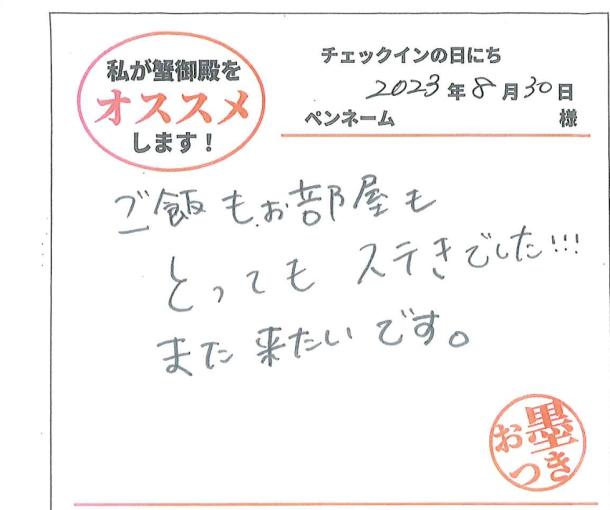 私が蟹御殿を
オススメ
します！
チェックインの日にち
2023年8月30日
ペンネーム 様
ご飯もお部屋も
とっても ステきでした!!!
また来たいです。
お墨
つき